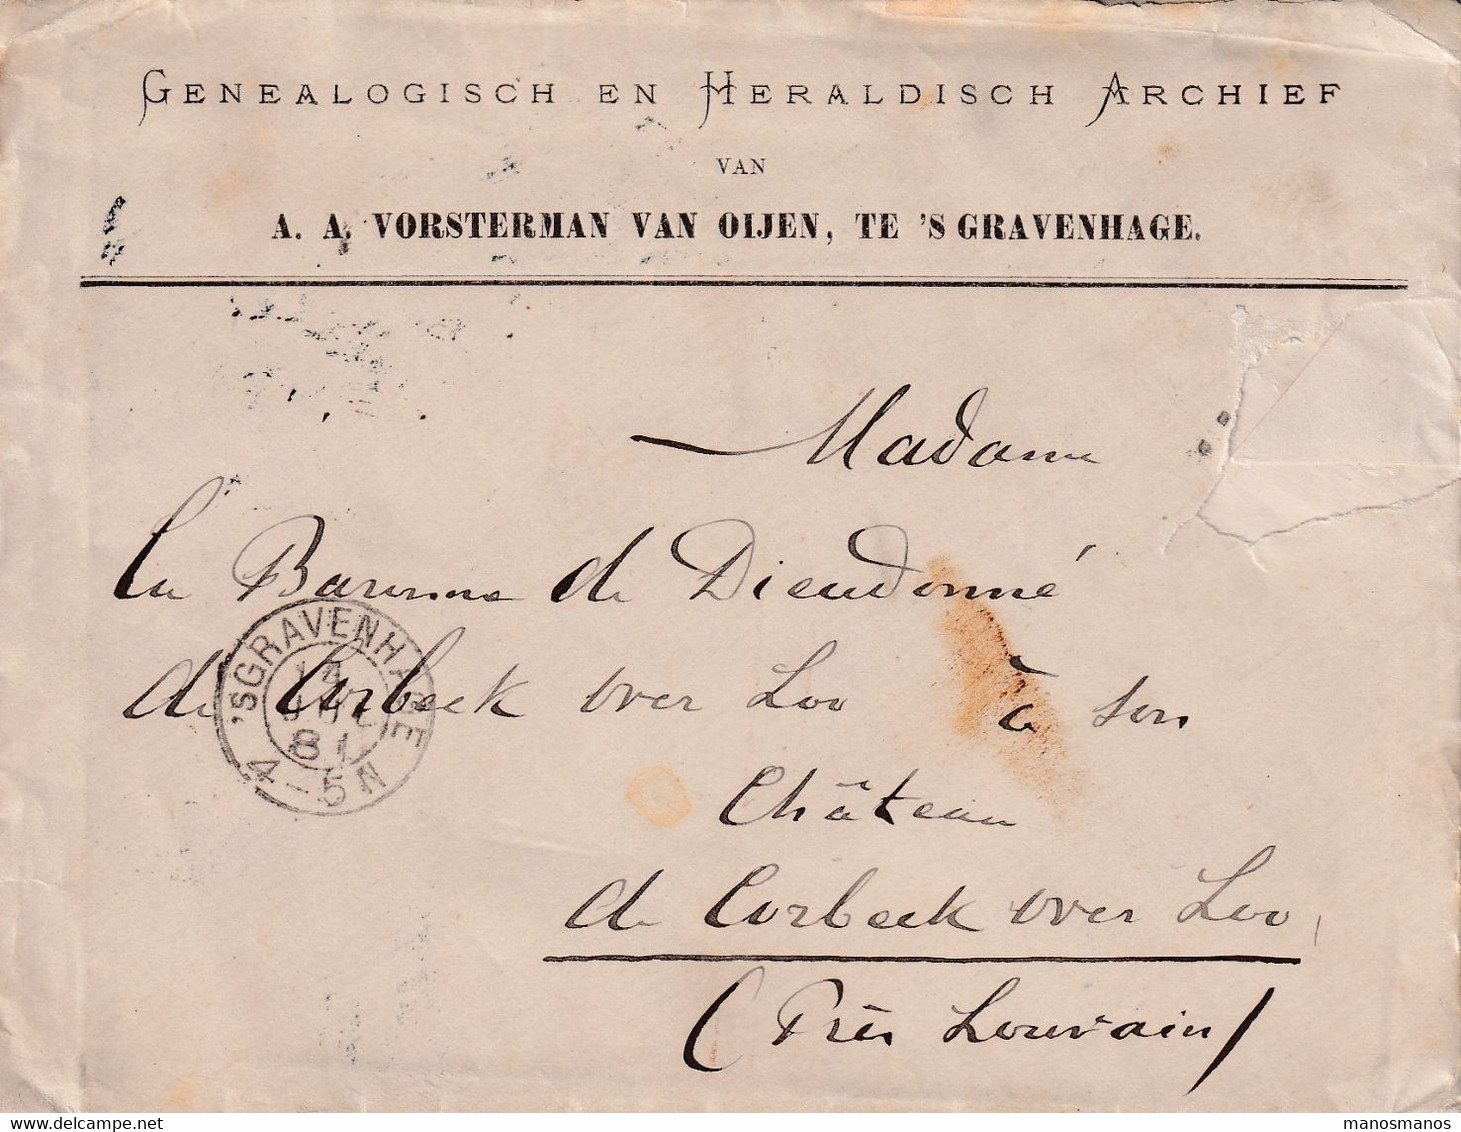 GENEALOGISCH EN HERALDISCH ARCHIEF
VAN
A. A. VORSTERMAN VAN OIJEN, TE 'S GRAVENHAGE.
Madame
La Baronne de Dieudonné
de Corbeek over Loo à son
Château
de Corbeek over Loo,
(Près Louvain)
'SGRAVENHAGE
81
4-5N
manosmanos